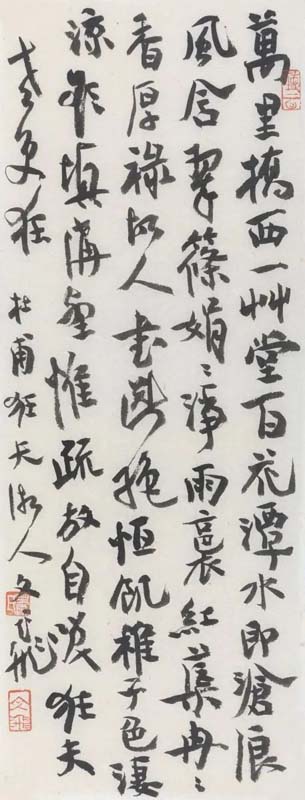 萬里橋西一艸堂百花潭水即滄浪
風含翠篠娟〻淨雨裛紅蕖冉〻
香厚祿故人書斷絶恒飢稚子色淒
涼欲填溝壑惟疏放自笑狂夫
老更狂 杜甫狂夫